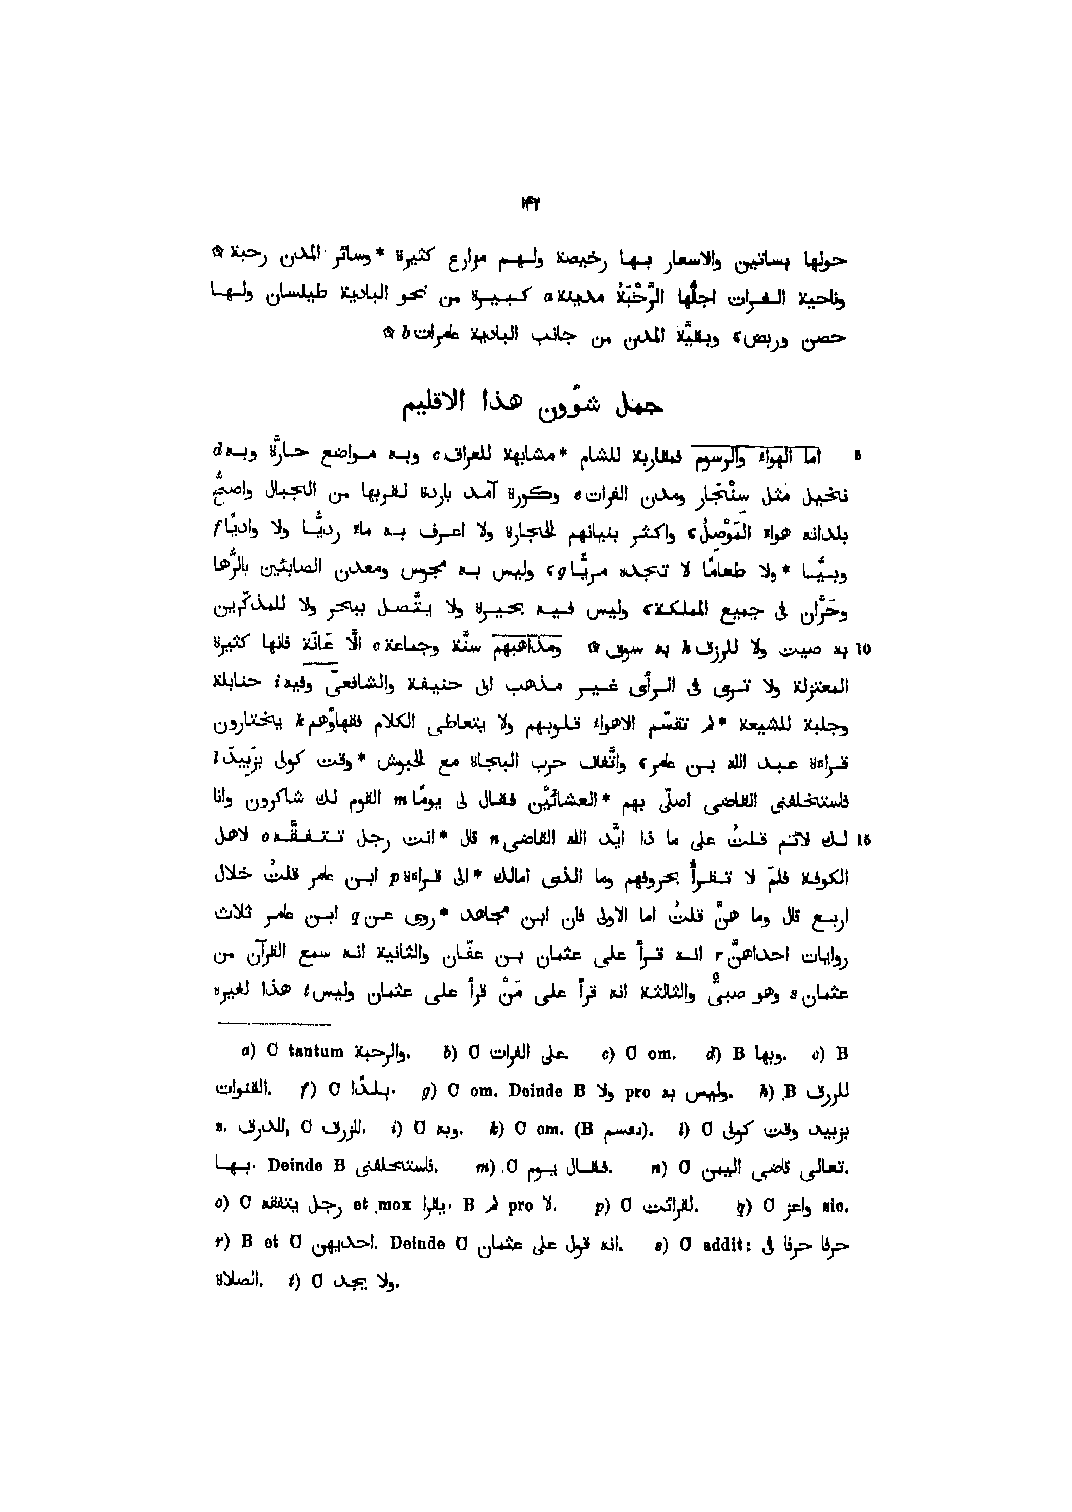 ١٤٢
حولها بساتين والاسعار بها رخيصة ولهم مزارع كثيرة *وسائر المدن رحبة ۞
وناحية الفرات اجلُّها الرَّحْبَةُ مدينة a كبيرة من نحو البادية طيلسان ولها
حصن وربض c وبقيَّة المدن من جانب البادية عامرات b ۞
جمل شؤون هذا الاقليم
5 اما الهواء والرسوم فمقاربة للشام *مشابهة للعراق c وبه مواضع حارَّة وبه d
نخيل مثل سِنْجار ومدن الفرات e وكورة آمد باردة لقربها من الجبال واصحُّ
بلدانه هواء المَوْصِلُ c واكثر بنيانهم الحجارة ولا اعرف به ماء رديًّا ولا واديًا f
وبيًّا *ولا طعامًا لا تجده مريًّا g c وليس به مجوس ومعدن الصابئين بالرُّها
وحَرَّان فى جميع المملكة c وليس فيه بحيرة ولا يتَّصل ببحر ولا للمذكّرين
10 به صيت ولا للرزق h به سوق ۞ ومذاهبهم سنَّة وجماعة c الَّا عَانَة فانها كثيرة
المعتزلة ولا ترى فى الرأى غير مذهب ابى حنيفة والشافعىّ وفيه i حنابلة
وجلبة للشيعة *لم تقسّم الاهواء قلوبهم ولا يتعاطى الكلام فقهاؤهم k يختارون
قراءة عبد الله بن عامر c واتَّفاق حرب البجاة مع الحبوش *وقت كونى بزَبِيدَ l
فاستخلفنى القاضى اصلّى بهم *العشائَيْن فقال لى يومًا m القوم لك شاكرون وانا
15 لك لائم قلتُ على ما ذا ايَّد الله القاضى n قال *انت رجل تتفقَّه o لاهل
الكوفة فلِمَ لا تقرأُ بحروفهم وما الذى امالك *الى قراءة p ابن عامر قلتُ خلال
اربع قال وما هنَّ قلتُ اما الاولى فان ابن مجاهد *روى عن q ابن عامر ثلاث
روايات احداهنَّ r انه قرأ على عثمان بن عفّان والثانية انه سمع القرآن من
عثمان s وهو صبىٌّ والثالثة انه قرأ على مَنْ قرأ على عثمان وليس t هذا لغيره
a) C tantum والرحبة. b) C على الفرات. c) C om. d) B وبها. e) B
القنوات. f) C بلدًا. g) C om. Deinde B ولا pro وليس به. h) B للررق
s. للدرق, C للزرق. i) C وبه. k) C om. (B نقسم). l) C بزبيد وقت كونى
بها. Deinde B فاستخلفنى. m) C فقال يوم. n) C تعالى قاضى اليمن.
o) C رجل يتفقه et mox يقرا. B لم pro لا. p) C لقرائت. q) C واعز sic.
r) B et C احديهن. Deinde C انه قول على عثمان. s) C addit: حرفا حرفا فى
الصلاة. t) C ولا يجد.